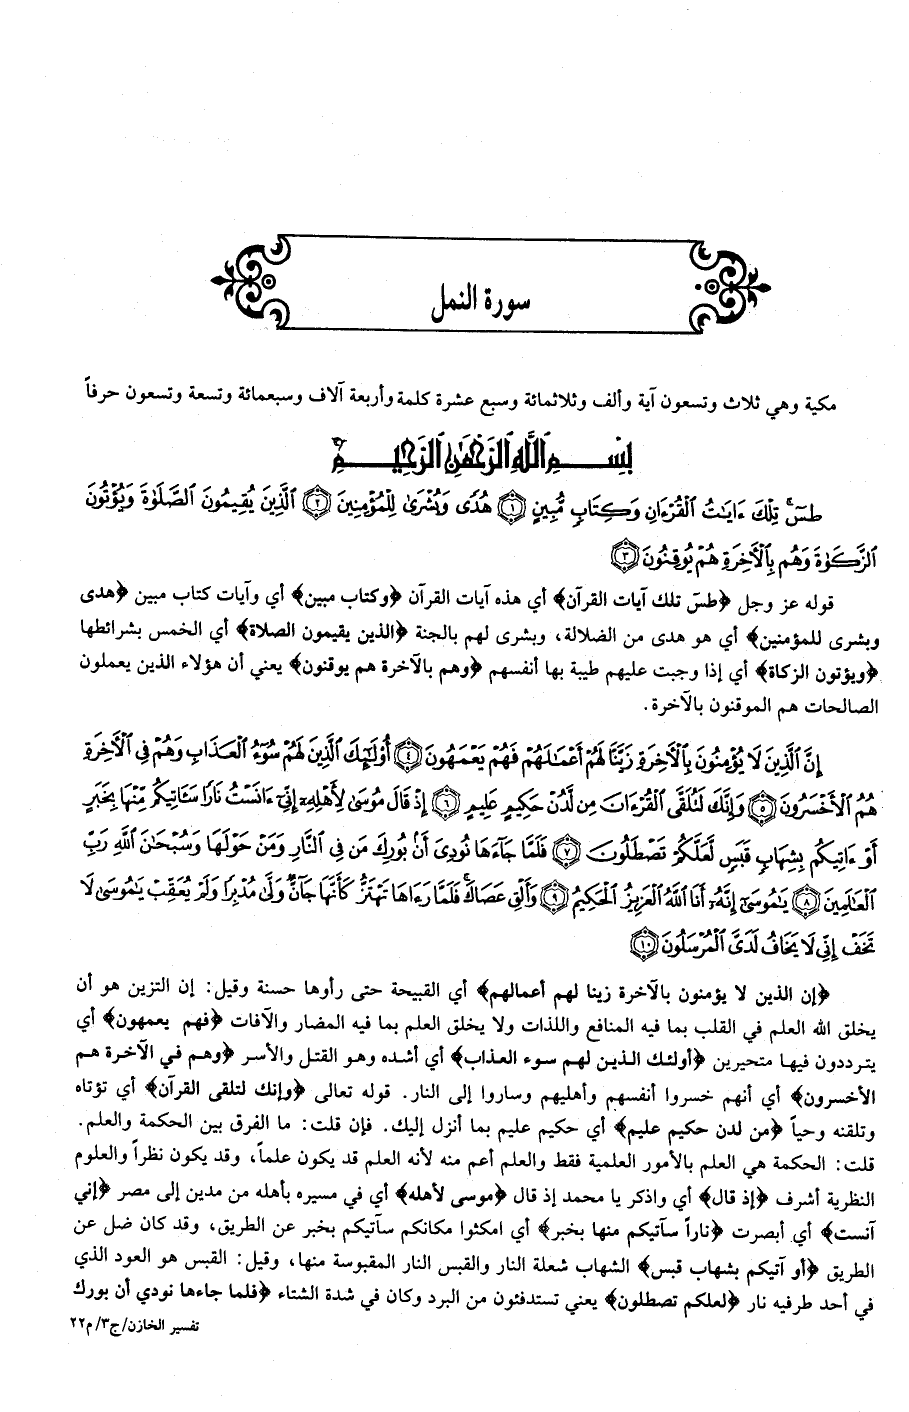 سورة النمل
مكية وهي ثلاث وتسعون آية وألف وثلاثمائة وسبع عشرة كلمة وأربعة آلاف وسبعمائة وتسعة وتسعون حرفاً
بِسْمِ اللَّهِ الرَّحْمَٰنِ الرَّحِيمِ
طسٓ ۚ تِلْكَ ءَايَٰتُ الْقُرْءَانِ وَكِتَابٍ مُّبِينٍ ﴿١﴾ هُدًى وَبُشْرَىٰ لِلْمُؤْمِنِينَ ﴿٢﴾ الَّذِينَ يُقِيمُونَ الصَّلَوٰةَ وَيُؤْتُونَ
الزَّكَوٰةَ وَهُم بِالْأَخِرَةِ هُمْ يُوقِنُونَ ﴿٣﴾
قوله عز وجل ﴿طسٓ تلك آيات القرآن﴾ أي هذه آيات القرآن ﴿وكتاب مبين﴾ أي وآيات كتاب مبين ﴿هدى
وبشرى للمؤمنين﴾ أي هو هدى من الضلالة، وبشرى لهم بالجنة ﴿الذين يقيمون الصلاة﴾ أي الخمس بشرائطها
﴿ويؤتون الزكاة﴾ أي إذا وجبت عليهم طيبة بها أنفسهم ﴿وهم بالآخرة هم يوقنون﴾ يعني أن هؤلاء الذين يعملون
الصالحات هم الموقنون بالآخرة.
إِنَّ الَّذِينَ لَا يُؤْمِنُونَ بِالْأَخِرَةِ زَيَّنَّا لَهُمْ أَعْمَٰلَهُمْ فَهُمْ يَعْمَهُونَ ﴿٤﴾ أُوْلَٰٓئِكَ الَّذِينَ لَهُمْ سُوٓءُ الْعَذَابِ وَهُمْ فِي الْأَخِرَةِ
هُمُ الْأَخْسَرُونَ ﴿٥﴾ وَإِنَّكَ لَتُلَقَّى الْقُرْءَانَ مِن لَّدُنْ حَكِيمٍ عَلِيمٍ ﴿٦﴾ إِذْ قَالَ مُوسَىٰ لِأَهْلِهِۦٓ إِنِّيٓ ءَانَسْتُ نَارًا سَـَٔاتِيكُم مِّنْهَا بِخَبَرٍ
أَوْ ءَاتِيكُم بِشِهَابٍ قَبَسٍ لَّعَلَّكُمْ تَصْطَلُونَ ﴿٧﴾ فَلَمَّا جَآءَهَا نُودِيَ أَنۢ بُورِكَ مَن فِي النَّارِ وَمَنْ حَوْلَهَا وَسُبْحَٰنَ اللَّهِ رَبِّ
الْعَٰلَمِينَ ﴿٨﴾ يَٰمُوسَىٰٓ إِنَّهُۥٓ أَنَا اللَّهُ الْعَزِيزُ الْحَكِيمُ ﴿٩﴾ وَأَلْقِ عَصَاكَ ۚ فَلَمَّا رَءَاهَا تَهْتَزُّ كَأَنَّهَا جَآنٌّ وَلَّىٰ مُدْبِرًا وَلَمْ يُعَقِّبْ ۚ يَٰمُوسَىٰ لَا
تَخَفْ إِنِّي لَا يَخَافُ لَدَيَّ الْمُرْسَلُونَ ﴿١٠﴾
﴿إن الذين لا يؤمنون بالآخرة زينا لهم أعمالهم﴾ أي القبيحة حتى رأوها حسنة وقيل: إن التزين هو أن
يخلق الله العلم في القلب بما فيه المنافع واللذات ولا يخلق العلم بما فيه المضار والآفات ﴿فهم يعمهون﴾ أي
يترددون فيها متحيرين ﴿أولئك الذين لهم سوء العذاب﴾ أي أشده وهو القتل والأسر ﴿وهم في الآخرة هم
الأخسرون﴾ أي أنهم خسروا أنفسهم وأهليهم وساروا إلى النار. قوله تعالى ﴿وإنك لتلقى القرآن﴾ أي تؤتاه
وتلقنه وحياً ﴿من لدن حكيم عليم﴾ أي حكيم عليم بما أنزل إليك. فإن قلت: ما الفرق بين الحكمة والعلم.
قلت: الحكمة هي العلم بالأمور العلمية فقط والعلم أعم منه لأنه العلم قد يكون علماً، وقد يكون نظراً والعلوم
النظرية أشرف ﴿إذ قال﴾ أي واذكر يا محمد إذ قال ﴿موسى لأهله﴾ أي في مسيره بأهله من مدين إلى مصر ﴿إني
آنست﴾ أي أبصرت ﴿ناراً سآتيكم منها بخبر﴾ أي امكثوا مكانكم سآتيكم بخبر عن الطريق، وقد كان ضل عن
الطريق ﴿أو آتيكم بشهاب قبس﴾ الشهاب شعلة النار والقبس النار المقبوسة منها، وقيل: القبس هو العود الذي
في أحد طرفيه نار ﴿لعلكم تصطلون﴾ يعني تستدفئون من البرد وكان في شدة الشتاء ﴿فلما جاءها نودي أن بورك
تفسير الخازن/ج٣/م٢٢